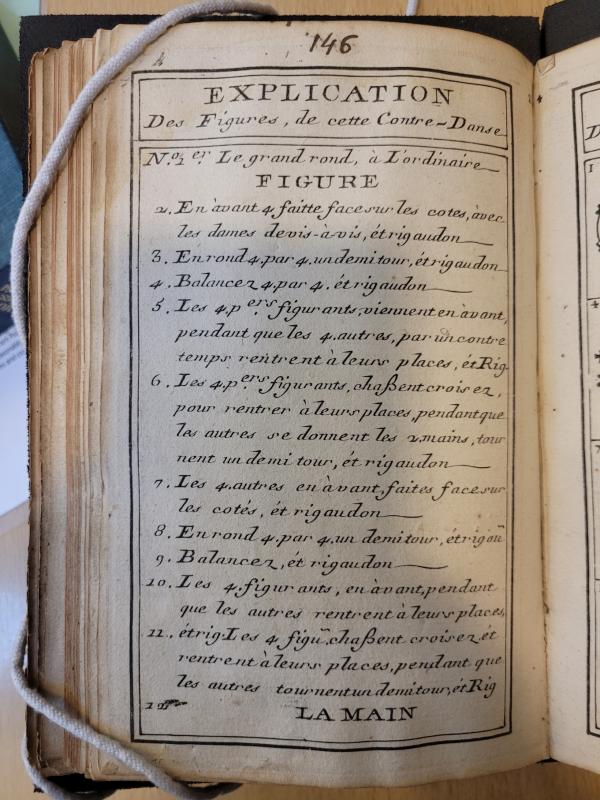 146
EXPLICATION
Des Figures, de cette Contre-Danse
N.o 1.er Le grand rond, à L'ordinaire
FIGURE
2. En avant 4 faitte face sur les cotes, avec
les dames de vis-à-vis, ét rigaudon
3. En rond 4 par 4. un demi tour, ét rigaudon
4. Balancez 4 par 4. ét rigaudon
5. Les 4 p.ers figurants, viennent en avant,
pendant que les 4 autres, par un contre
temps rentrent à leurs places, ét Rig.
6. Les 4 p.ers figurants, chaßent croisez,
pour rentrer à leurs places, pendant que
les autres se donnent les 2 mains, tour
nent un demi tour, ét rigaudon
7. Les 4 autres en avant, faites face sur
les cotés, ét rigaudon
8. En rond 4 par 4. un demi tour, ét rigoū
9. Balancez, ét rigaudon
10. Les 4 figurants, en avant, pendant
que les autres rentrent à leurs places,
11. ét rig. Les 4 figū. chaßent croisez ét
rentrent à leurs places, pendant que
les autres tournent un demi tour, ét Rig
12 LA MAIN